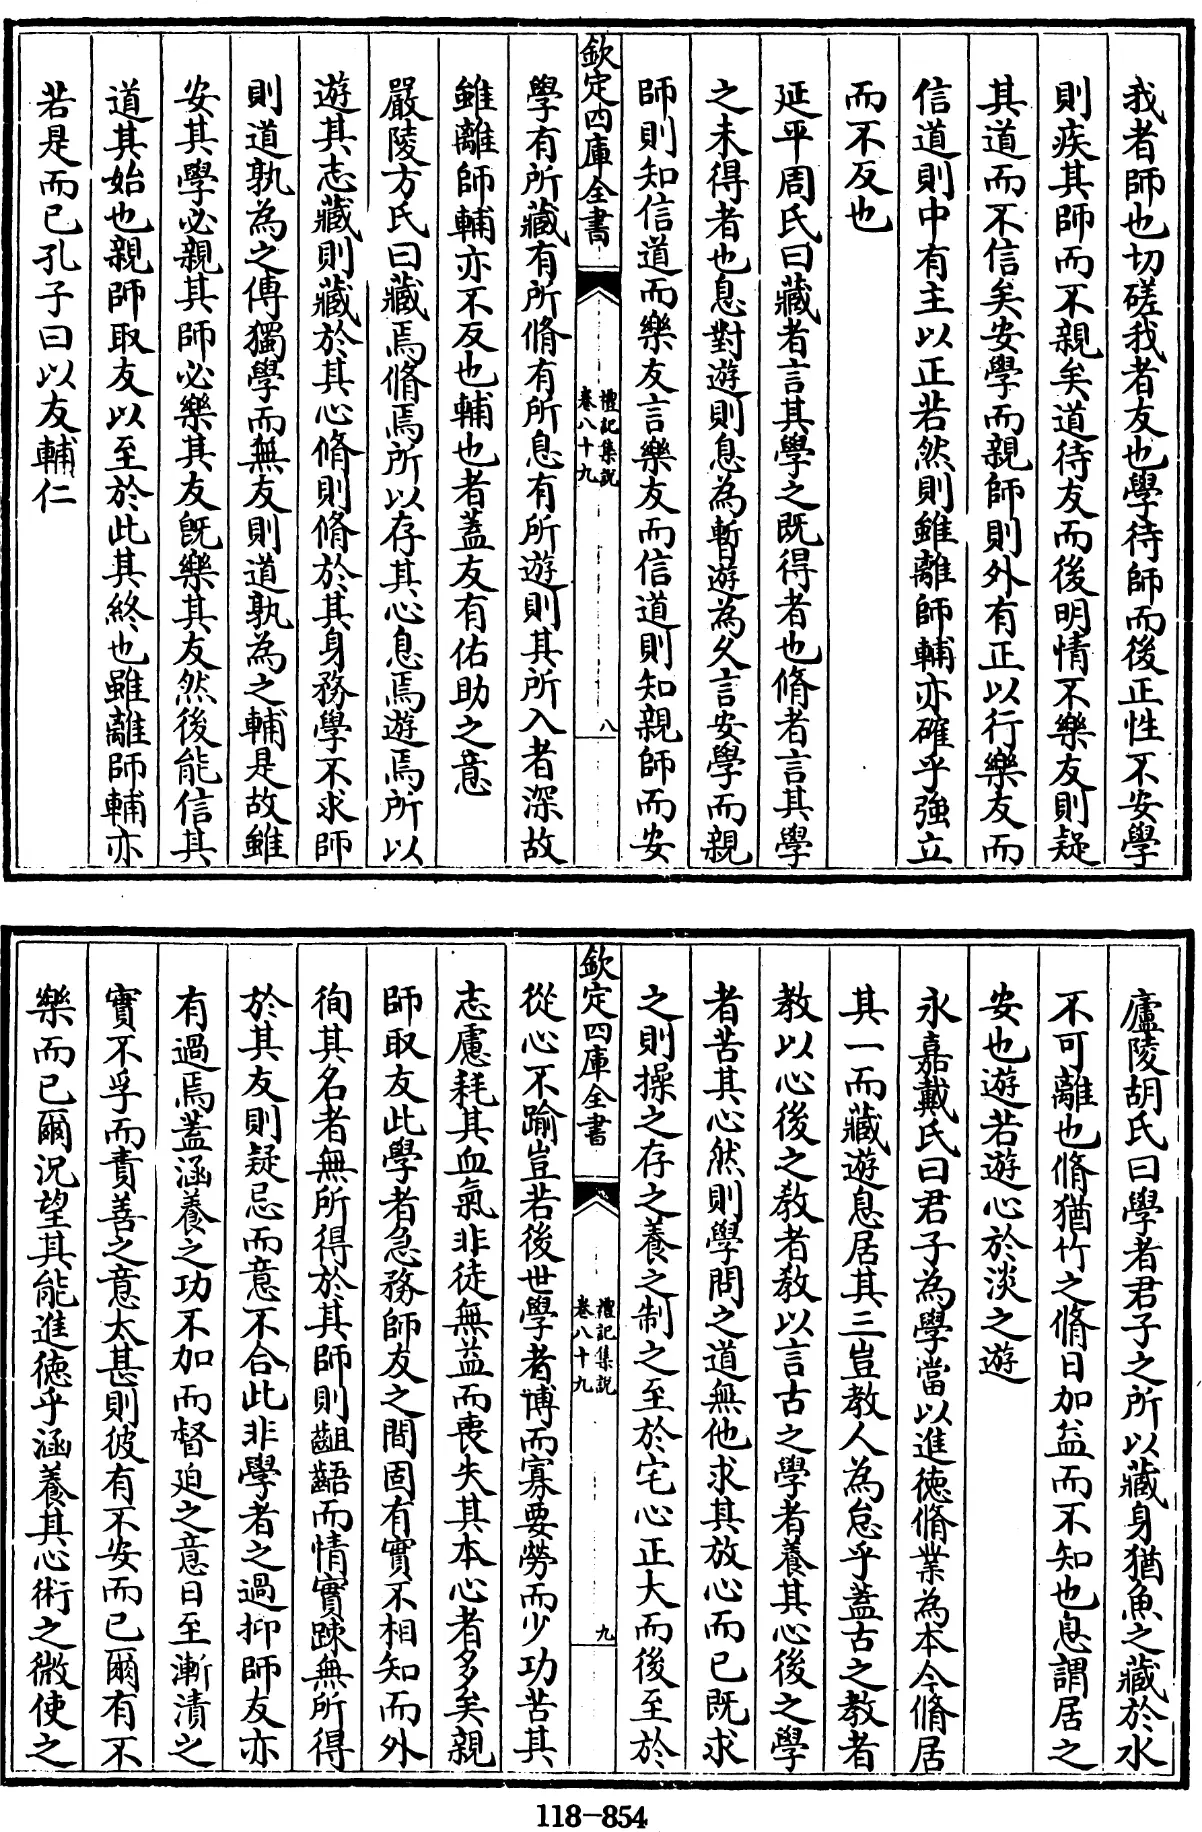 我者師也切磋我者友也學待師而後正性不安學
則疾其師而不親矣道待友而後明情不樂友則疑
其道而不信矣安學而親師則外有正以行樂友而
信道則中有主以正若然則雖離師輔亦確乎強立
而不反也
延平周氏曰藏者言其學之既得者也脩者言其學
之未得者也息對遊則息為暫遊為久言安學而親
師則知信道而樂友言樂友而信道則知親師而安
欽定四庫全書
禮記集説
卷八十九
八
學有所藏有所脩有所息有所遊則其所入者深故
雖離師輔亦不反也輔也者蓋友有佑助之意
嚴陵方氏曰藏焉脩焉所以存其心息焉遊焉所以
遊其志藏則藏於其心脩則脩於其身務學不求師
則道孰為之傳獨學而無友則道孰為之輔是故雖
安其學必親其師必樂其友既樂其友然後能信其
道其始也親師取友以至於此其終也雖離師輔亦
若是而已孔子曰以友輔仁
廬陵胡氏曰學者君子之所以藏身猶魚之藏於水
不可離也脩猶竹之脩日加益而不知也息謂居之
安也遊若遊心於淡之遊
永嘉戴氏曰君子為學當以進徳脩業為本今脩居
其一而藏遊息居其三豈教人為怠乎蓋古之教者
教以心後之教者教以言古之學者養其心後之學
者苦其心然則學問之道無他求其放心而已既求
之則操之存之養之制之至於宅心正大而後至於
欽定四庫全書
禮記集説
卷八十九
九
從心不踰豈若後世學者博而寡要勞而少功苦其
志慮耗其血氣非徒無益而喪失其本心者多矣親
師取友此學者急務師友之間固有實不相知而外
徇其名者無所得於其師則齟齬而情實踈無所得
於其友則疑忌而意不合此非學者之過抑師友亦
有過焉蓋涵養之功不加而督廹之意日至漸漬之
實不孚而責善之意太甚則彼有不安而已爾有不
樂而已爾況望其能進徳乎涵養其心術之微使之
118-854